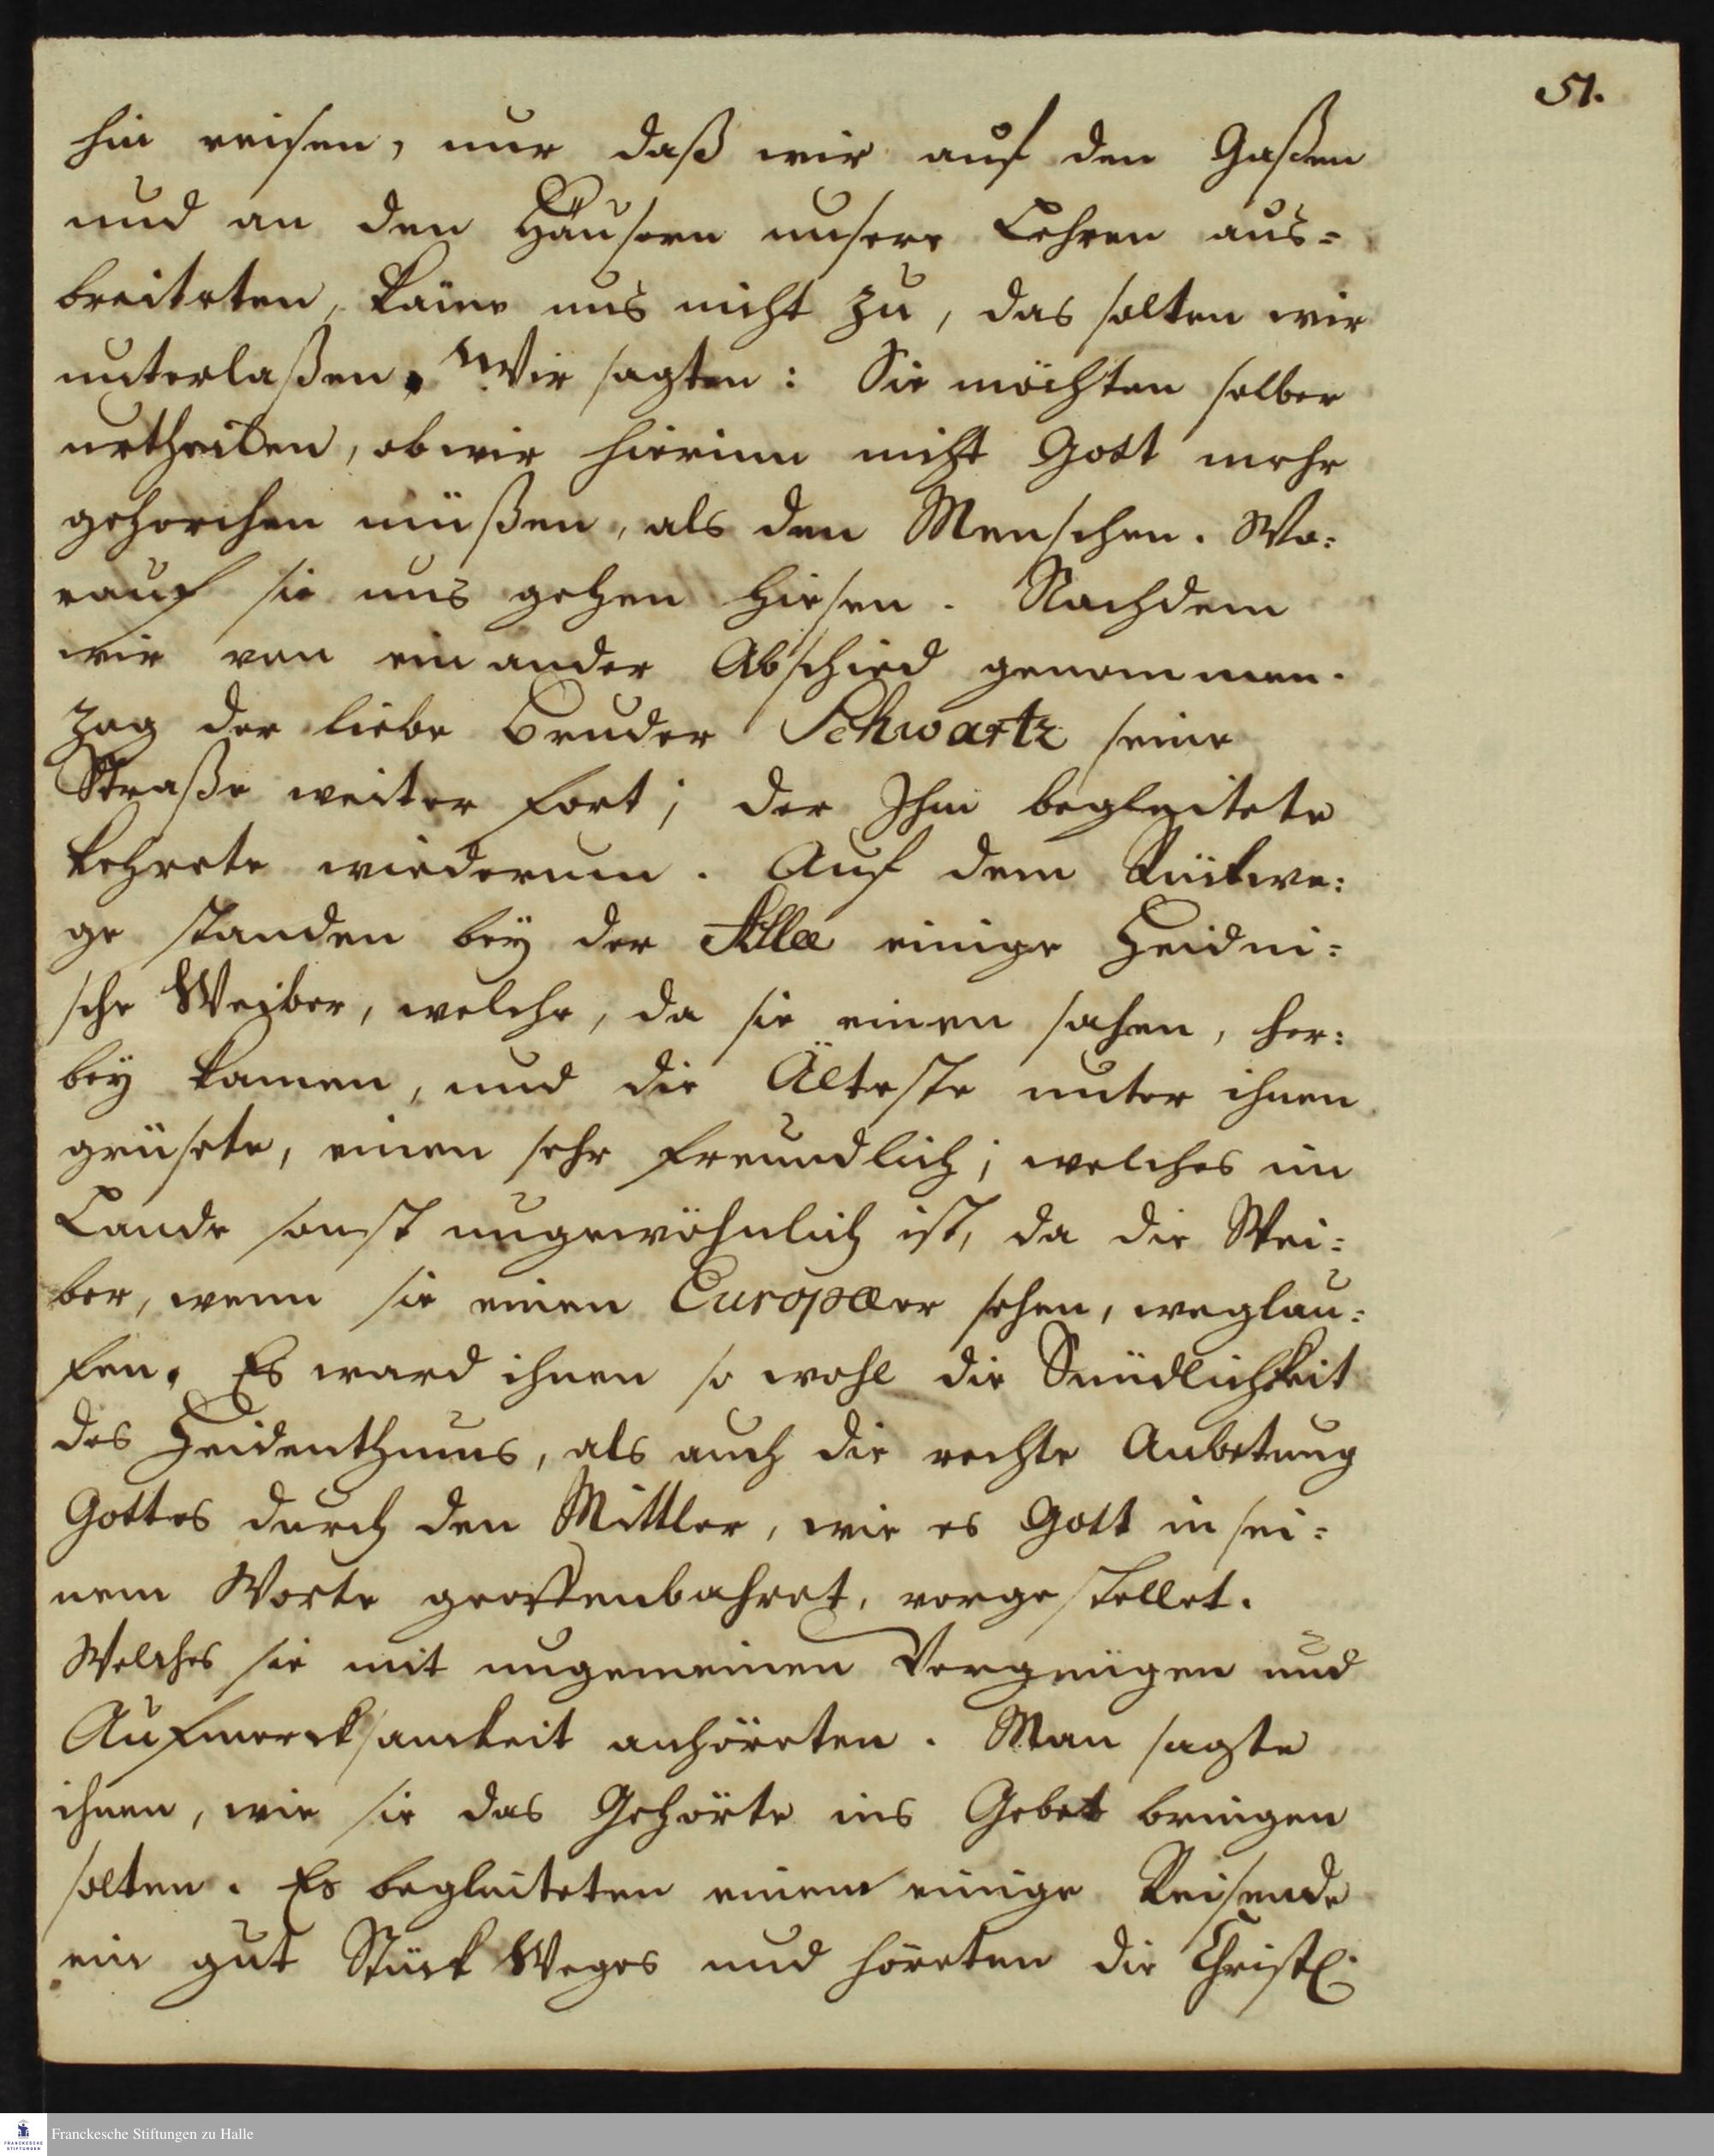 51.
hin reisen, nur daß wir auf den Gaßen
und an den Häusern unsere Lehren aus=
breiteten, käme uns nicht zu, das solten wir
unterlaßen. Wir sagten: Sie möchten selber
urtheilen, ob wir hierinn nicht Gott mehr
gehorchen müßen, als den Menschen. Wo:
rauf sie uns gehen hiesen. Nachdem
wir von einander Abschied genommen.
zog der liebe Bruder Schwartz seine
Straße weiter fort; der Ihn begleitete
kehrete wiederum. Auf dem Rückwe:
ge standen bey der einige Heidni:
sche Weiber, welche, da sie einen sahen, her:
bey kamen, und die Älteste unter ihnen
grüsete, einen sehr freundlich; welches im
Lande sonst ungewöhnlich ist, da die Wei:
ber, wenn sie einen Europæer sehen, weglau:
fen. Es ward ihnen so wohl die Sündlichkeit
des Heidenthums, als auch die rechte Anbetung
Gottes durch den Mittler, wie es Gott in sei:
nem Worte geoffenbahret, vorgestellet.
Welches sie mit ungemeinen Vergnügen und
Aufmercksamkeit anhöreten. Man sagte
ihnen, wie sie das Gehörte ins Gebet bringen
solten. Es begleiteten einem einige Reisende
ein gut Stück Weges und höreten die Christl.
Franckesche Stiftungen zu Halle
FRANCKESCHE STIFTUNGEN